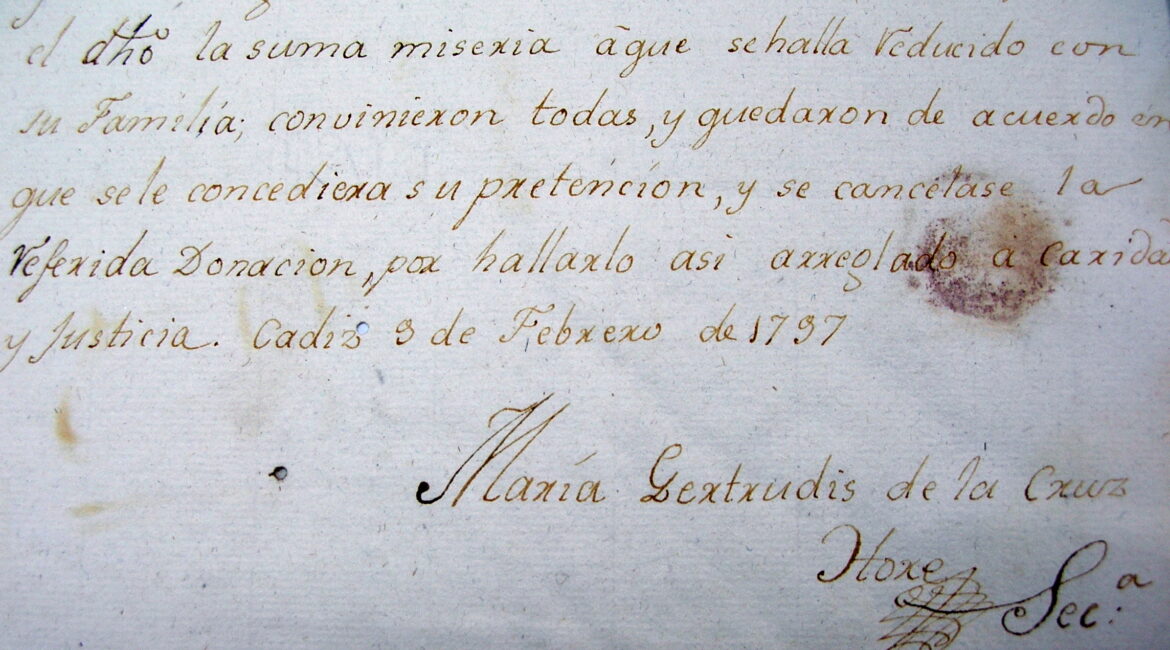 el dho la suma miseria âque sehalla reducido con
su Familia; convinieron todas, y quedaron de acuerdo en
que sele concediera su pretencion, y se cancelase la
referida Donacion, por hallarlo asi arreglado à Carida
y Justicia. Cadiz 9 de Febrero de 1797
María Gertrudis de la Cruz
Hore
Sec.ª